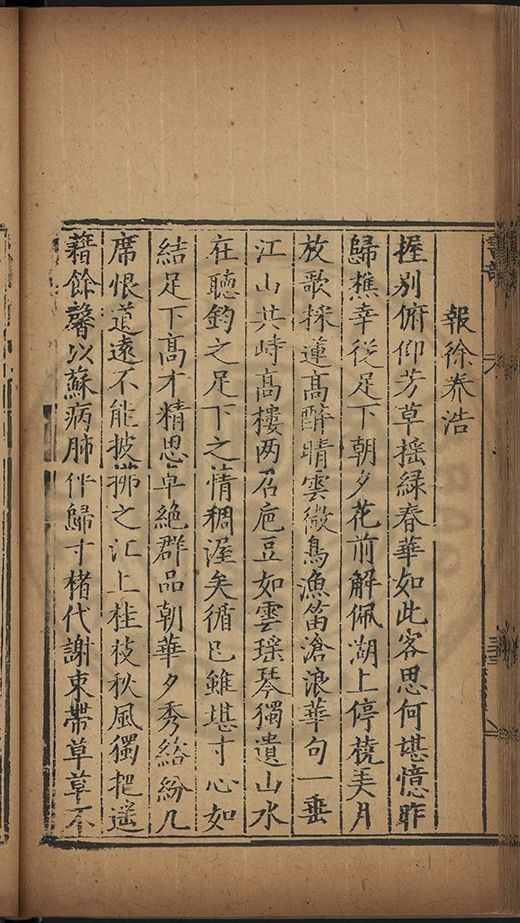 報徐養浩
握别俯仰芳草揺緑春華如此客思何堪憶昨
歸樵幸從足下朝夕花前解佩湖上停橈美月
放歌採蓮髙醉晴雲微鳥漁笛滄浪華句一垂
江山共峙髙樓两召巵豆如雲瑶琴獨遺山水
在聽鈞之足下之情稠渥矣循已雖堪寸心如
結足下髙才精思卓絶群品朝華夕秀綌紛几
席恨道遠不能披拂之江上桂枝秋風獨把遥
藉餘馨以蘇病肺伻歸寸楮代謝束帶草草不